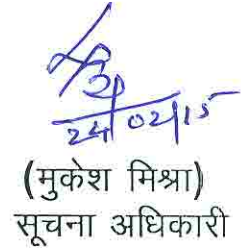 24/02/15
(मुकेश मिश्रा)
सूचना अधिकारी